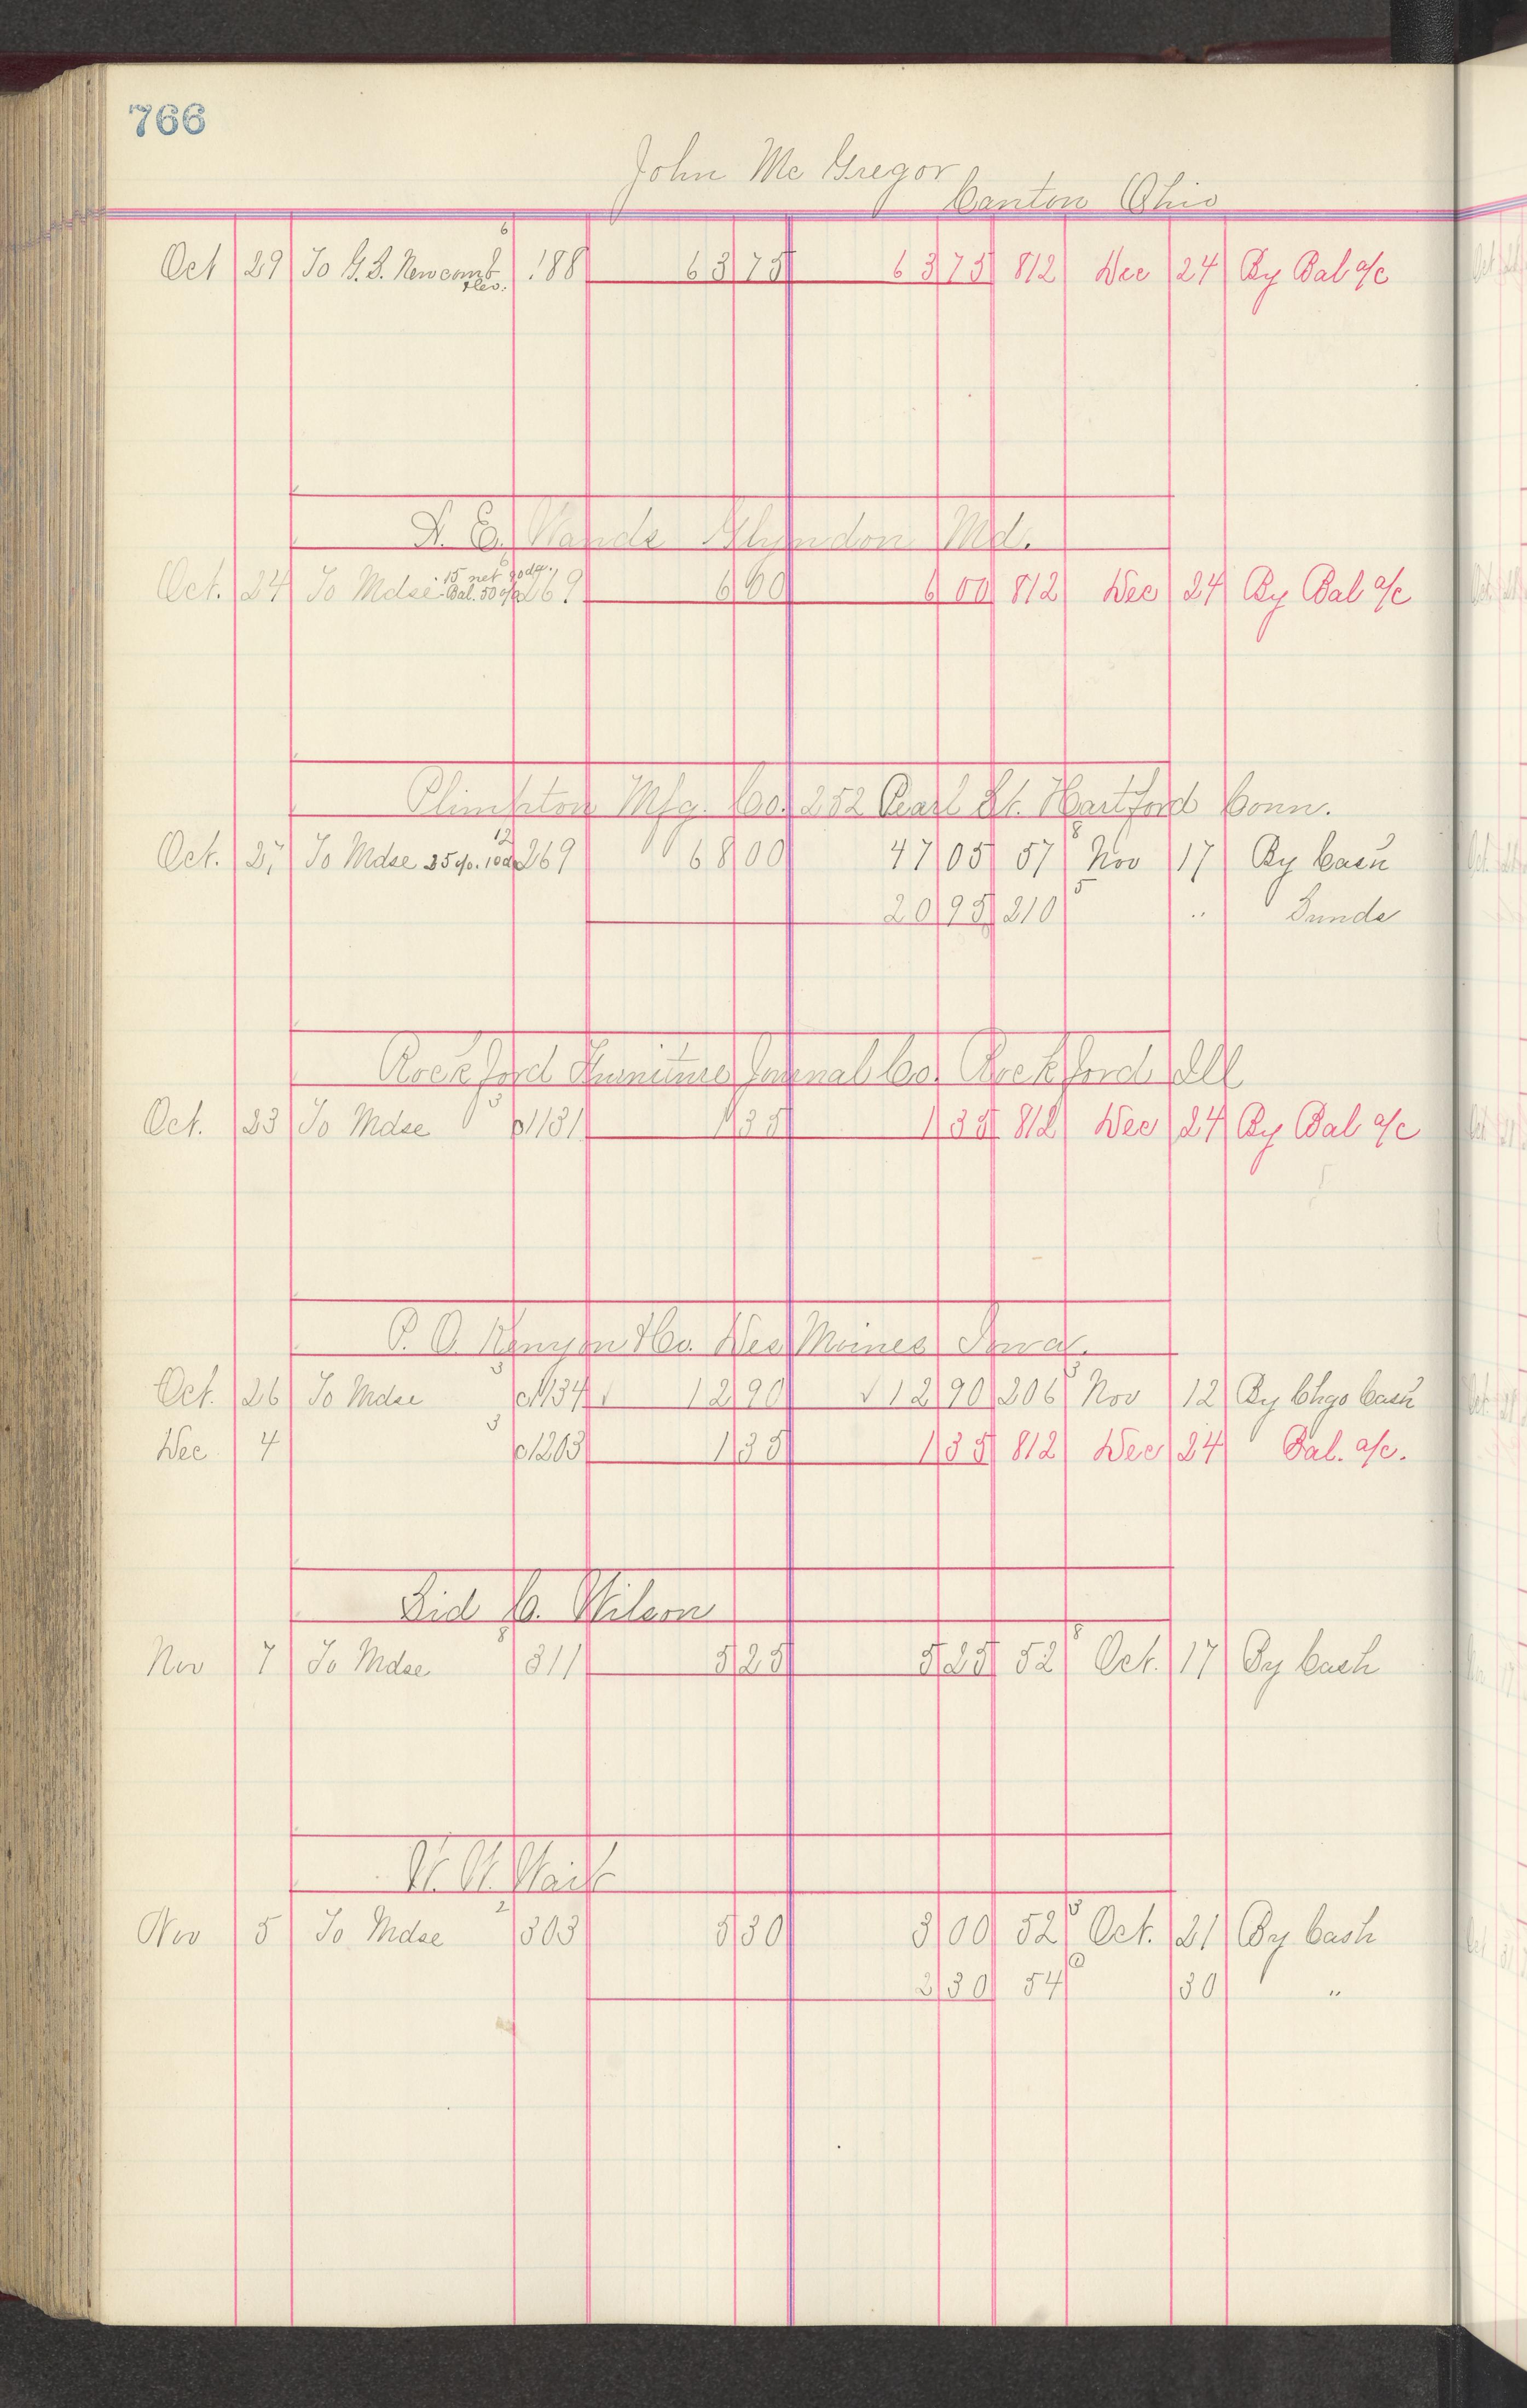 766
John Mc Gregor
Canton Ohio
Oct 29 To G. S. Newcomb 6 188 63 75 63 75 812 Dec 24 By Bal a/c
Clev.
Glyndon Md.
15 net 90 da.
Oct. 24 To Mdse Bal. 50 269 6 00 6 00 812 Dec 24 By Bal a/c
Plimpton Mfg. Co. 252 Pearl St. Hartford Conn.
Oct. 27 To Mdse 35 % 10 da 12 269 68 00 47 05 57 8 Nov 17 By Cash
20 95 210 5 " Sunds
Rockford Furniture Journal Co. Rockford Ill
Oct. 23 To Mdse 3 c1131 1 35 1 35 812 Dec 24 By Bal a/c
P. O. Kenyon & Co. Des Moines Iowa.
Oct. 26 To Mdse 3 c1134 √ 12 90 √ 12 90 206 3 Nov 12 By Chgo Cash
Dec 4 3 c1203 1 35 1 35 812 Dec 24 Bal. a/c.
Sid C. Wilson
Nov 7 To Mdse 8 311 5 25 5 25 52 8 Oct. 17 By Cash
Nov 5 To Mdse 2 303 5 30 3 00 52 8 Oct. 21 By Cash
2 30 54 30 "